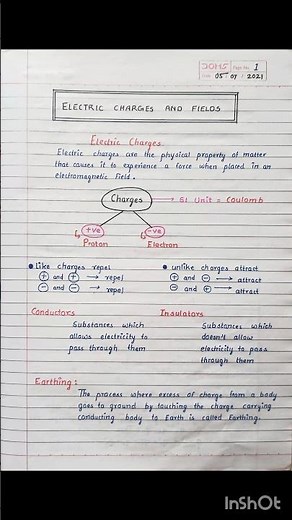 DOMS Page No. 1
Date 05 07 2021
ELECTRIC CHARGES AND FIELDS
Electric Charges
Electric charges are the physical property of matter
that causes it to experience a force when placed in an
electromagnetic field.
Charges → SI Unit = Coulomb
+ve -ve
Proton Electron
• Like charges repel • unlike charges attract
+ and + → repel + and - → attract
- and - → repel - and + → attract
Conductors Insulators
Substances which Substances which
allows electricity to doesn't allow
pass through them electricity to pass
through them
Earthing :
The process where excess of charge from a body
goes to ground by touching the charge carrying
conducting body to Earth is called Earthing.
InShOt